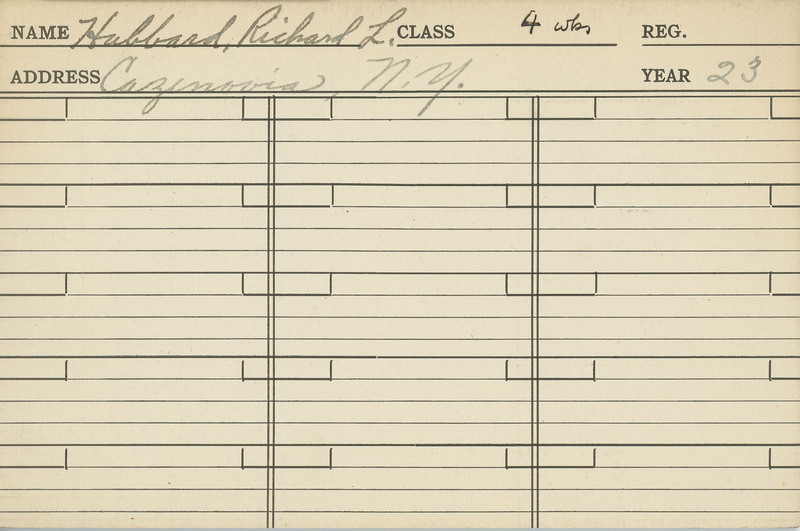 NAME Hubbard, Richard L. CLASS 4 wks REG.
ADDRESS Cazenovia, N.Y. YEAR 23